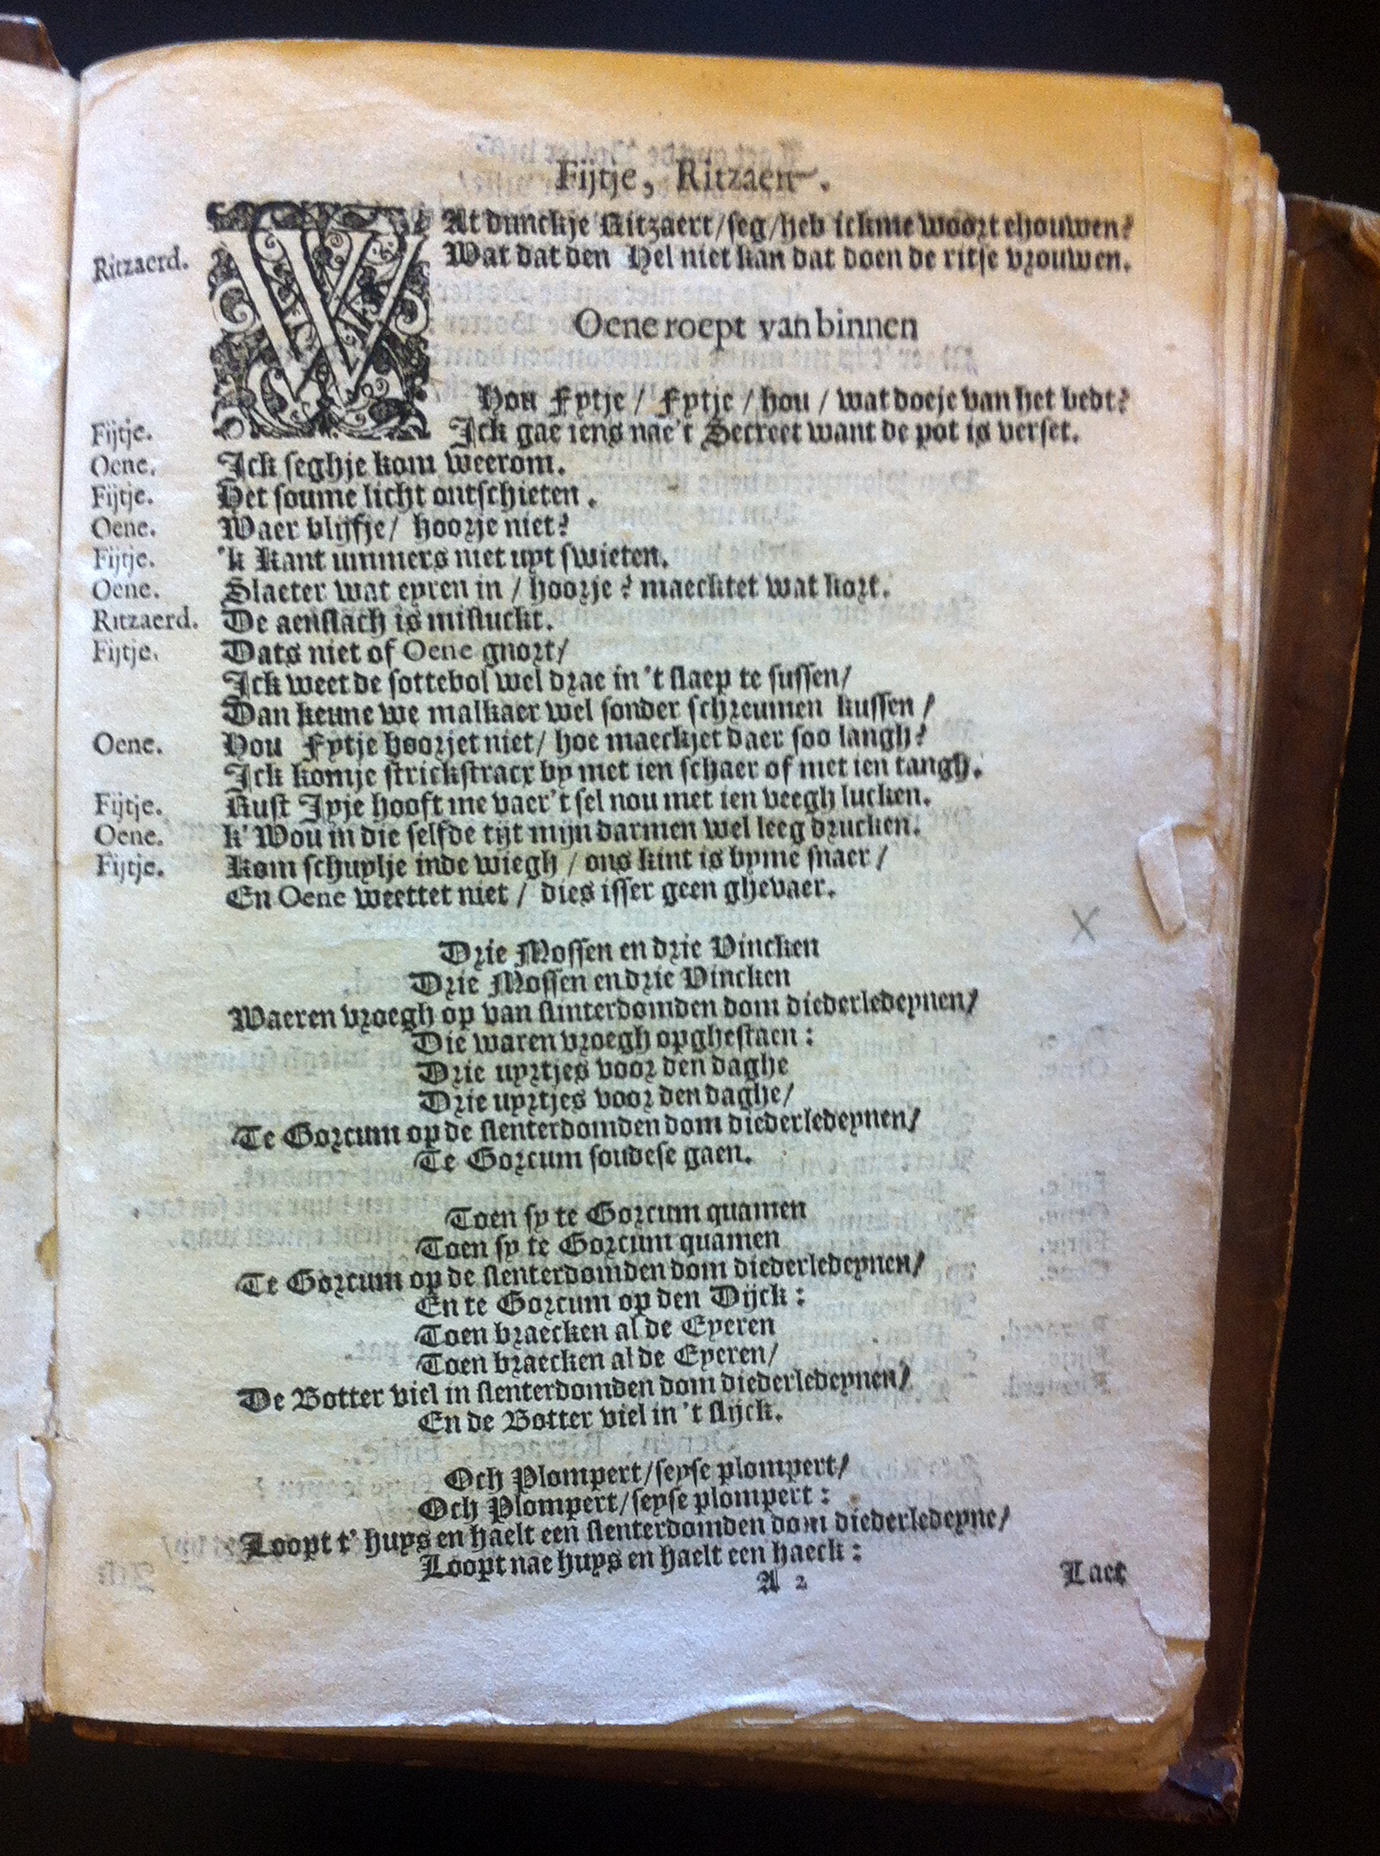 Fijtje, Ritzaert.
WAt dunckje Ritzaert/seg/heb ickme woort ehouwen?
Ritzaerd. Wat dat den Hel niet kan dat doen de ritse vrouwen.
Oene roept van binnen
Hou Fytje / Fytje / hou / wat doeje van het bedt?
Fijtje. Ick gae iens nae't Secreet want de pot is verset.
Oene. Ick seghje kom weerom.
Fijtje. Het soume licht ontschieten.
Oene. Waer blijfje/ hoorje niet?
Fijtje. 'k Kant ummers niet uyt swieten.
Oene. Slaeter wat eyren in / hoorje? maecktet wat kort.
Ritzaerd. De aenslach is misluckt.
Fijtje. Dats niet of Oene gnort/
Ick weet de sottebol wel drae in 't slaep te sussen/
Dan keune we malkaer wel sonder schreumen kussen /
Oene. Hou Fytje hoorjet niet/ hoe maeckjet daer soo langh?
Ick komje strickstracx by met ien schaer of met ien tangh.
Fijtje. Rust Jyje hooft me vaer't sel nou met ien veegh lucken.
Oene. k' Wou in die selfde tijt mijn darmen wel leeg drucken.
Fijtje. Kom schuylje inde wiegh / ons kint is byme snaer /
En Oene weettet niet / dies isser geen ghevaer.
Drie Mossen en drie Vincken
Drie Mossen en drie Vincken
Waeren vroegh op van slinterdomden dom diederledeynen/
Die waren vroegh opghestaen:
Drie uyrtjes voor den daghe
Drie uyrtjes voor den daghe/
Te Gorcum op de slenterdomden dom diederledeynen/
Te Gorcum soudese gaen.
Toen sy te Gorcum quamen
Toen sy te Gorcum quamen
Te Gorcum op de slenterdomden dom diederledeynen/
En te Gorcum op den Dijck:
Toen braecken al de Eyeren
Toen braecken al de Eyeren/
De Botter viel in slenterdomden dom diederledeynen/
En de Botter viel in 't slijck.
Och Plompert/seyse plompert/
Och Plompert/seyse plompert:
Loopt t' huys en haelt een slenterdomden dom diederledeyne/
Loopt nae huys en haelt een haeck:
A 2 Laet